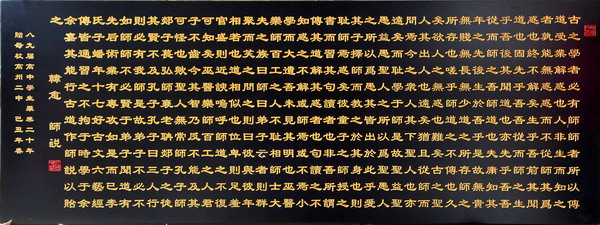 古之學者必有師師者所以傳
道受業解惑也人非生而知之
者孰能無惑惑而不從師其為
惑也終不解矣生乎吾前其聞
道也固先乎吾吾從而師之生
乎吾後其聞道也亦先乎吾吾
從而師之吾師道也夫庸知其
年之先後生於吾乎是故無貴
無賤無長無少道之所存師之
所存也嗟乎師道之不傳也久
矣欲人之無惑也難矣古之聖
人其出人也遠矣猶且從師而
問焉今之眾人其下聖人也亦
遠矣而恥學於師是故聖益聖
愚益愚聖人之所以為聖愚人
之所以為愚其皆出於此乎愛
其子擇師而教之於其身也則
恥師焉惑矣彼童子之師授之
書而習其句讀者也非吾所謂
傳其道解其惑者也句讀之不
知惑之不解或師焉或不焉小
學而大遺吾未見其明也巫醫
樂師百工之人不恥相師士大
夫之族曰師曰弟子云者則群
聚而笑之問之則曰彼與彼年
相若也道相似也位卑則足羞
官盛則近諛嗚呼師道之不復
可知矣巫醫樂師百工之人君
子不齒今其智乃反不能及其
可怪也歟聖人無常師孔子師
郯子萇弘師襄老聃郯子之徒
其賢不及孔子孔子曰三人行
則必有我師是故弟子不必不
如師師不必賢於弟子聞道有
先後術業有專攻如是而已李
氏子蟠年十七好古文六藝經
傳皆通習之不拘於時學於余
余嘉其能行古道作師說以貽
之
韓愈 師說
八九屆高中學生畢業二十年
贈母校高州二中 己丑年春